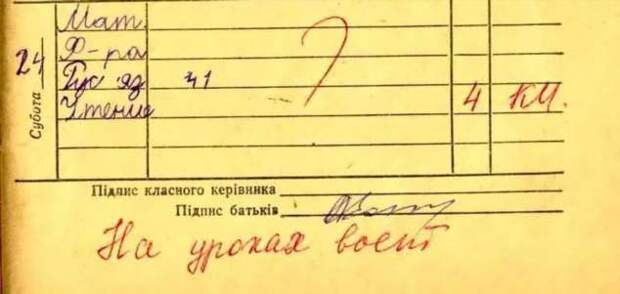 Мат
Ф-ра
24 Рус яз 41
Субота Чтение 4 КМ.
Підпис класного керівника
Підпис батьків
На уроках воет